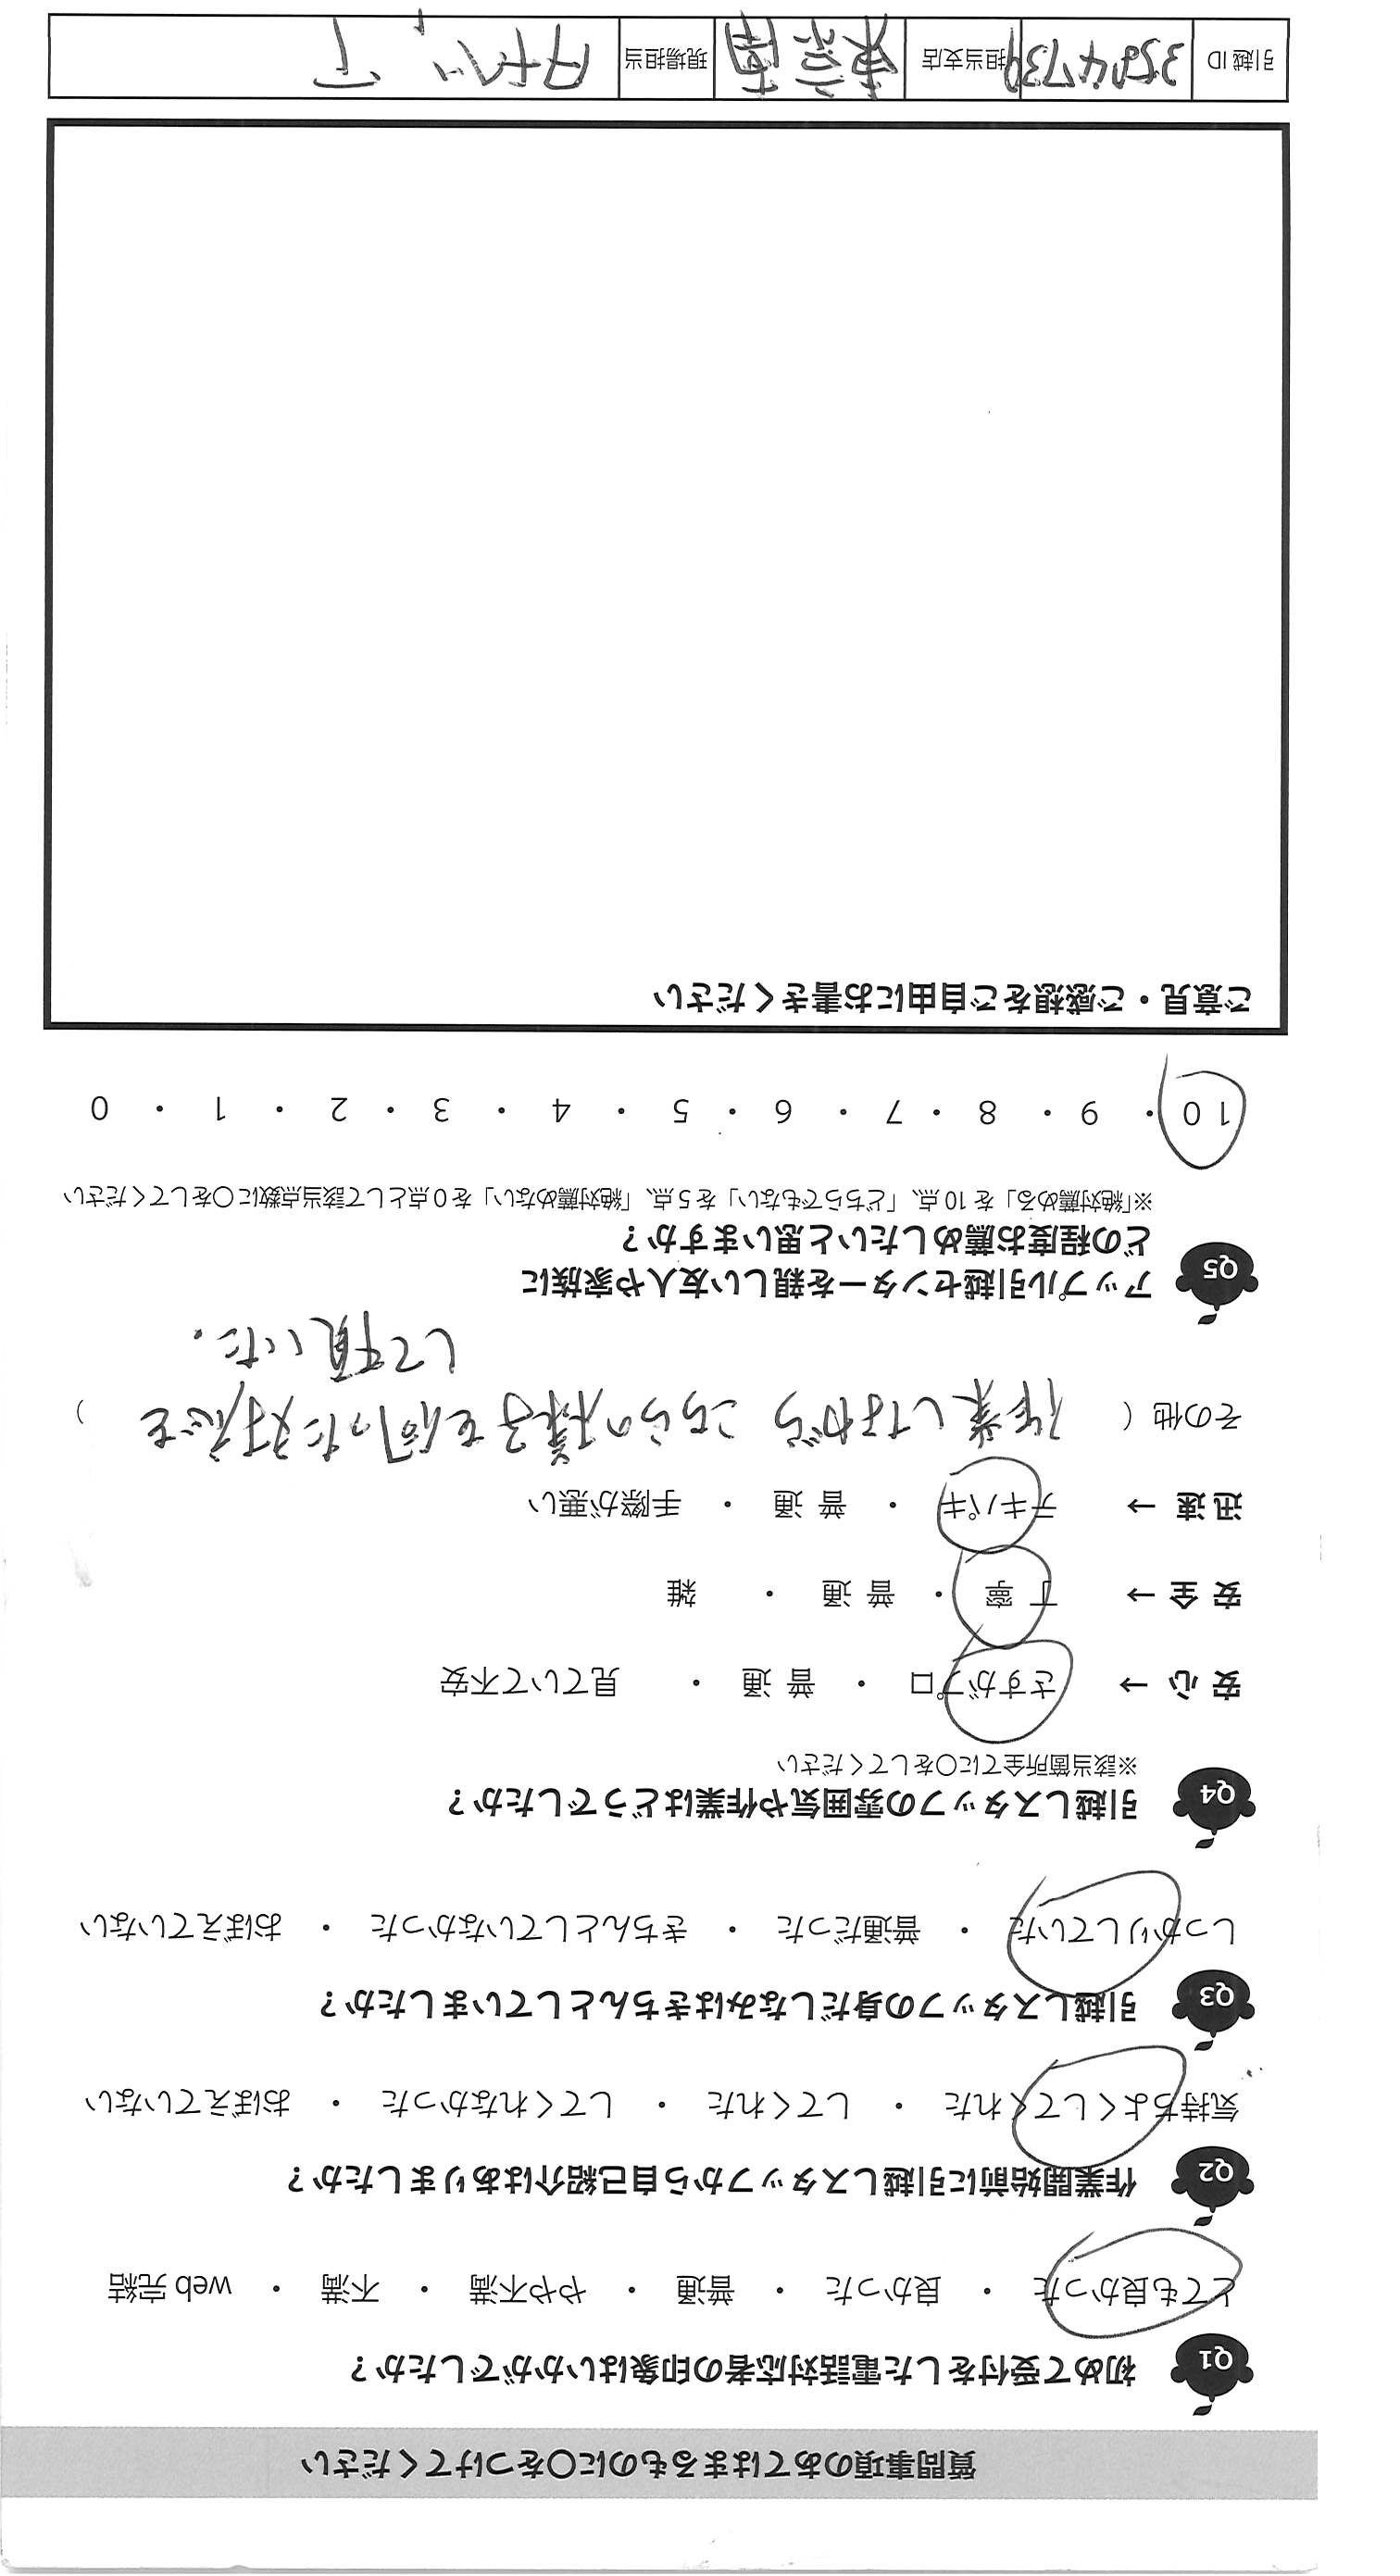 質問事項のあてはまるものに〇をつけてください
Q1 初めて受付をした電話対応者の印象はいかがでしたか？
とても良かった ・ 良かった ・ 普通 ・ やや不満 ・ 不満 ・ web 完結
Q2 作業開始前に引越しスタッフから自己紹介はありましたか？
気持ちよくしてくれた ・ してくれた ・ してくれなかった ・ おぼえていない
Q3 引越しスタッフの身だしなみはきちんとしていましたか？
しっかりしていた ・ 普通だった ・ きちんとしていなかった ・ おぼえていない
Q4 引越しスタッフの雰囲気や作業はどうでしたか？
※該当箇所全てに〇をしてください
安心→ さすがプロ ・ 普通 ・ 見ていて不安
安全→ 丁寧 ・ 普通 ・ 雑
迅速→ テキパキ ・ 普通 ・ 手際が悪い
その他（ 作業しながら こちらの様子を伺った対応を ）
して頂いた.
Q5 アップル引越センターを親しい友人や家族に
どの程度お薦めしたいと思いますか？
※「絶対薦める」を 10 点、「どちらでもない」を 5 点、「絶対薦めない」を 0 点として該当点数に〇をしてください
10 ・ 9 ・ 8 ・ 7 ・ 6 ・ 5 ・ 4 ・ 3 ・ 2 ・ 1 ・ 0
ご意見・ご感想をご自由にお書きください
引越 ID 担当支店 東京南 現場担当